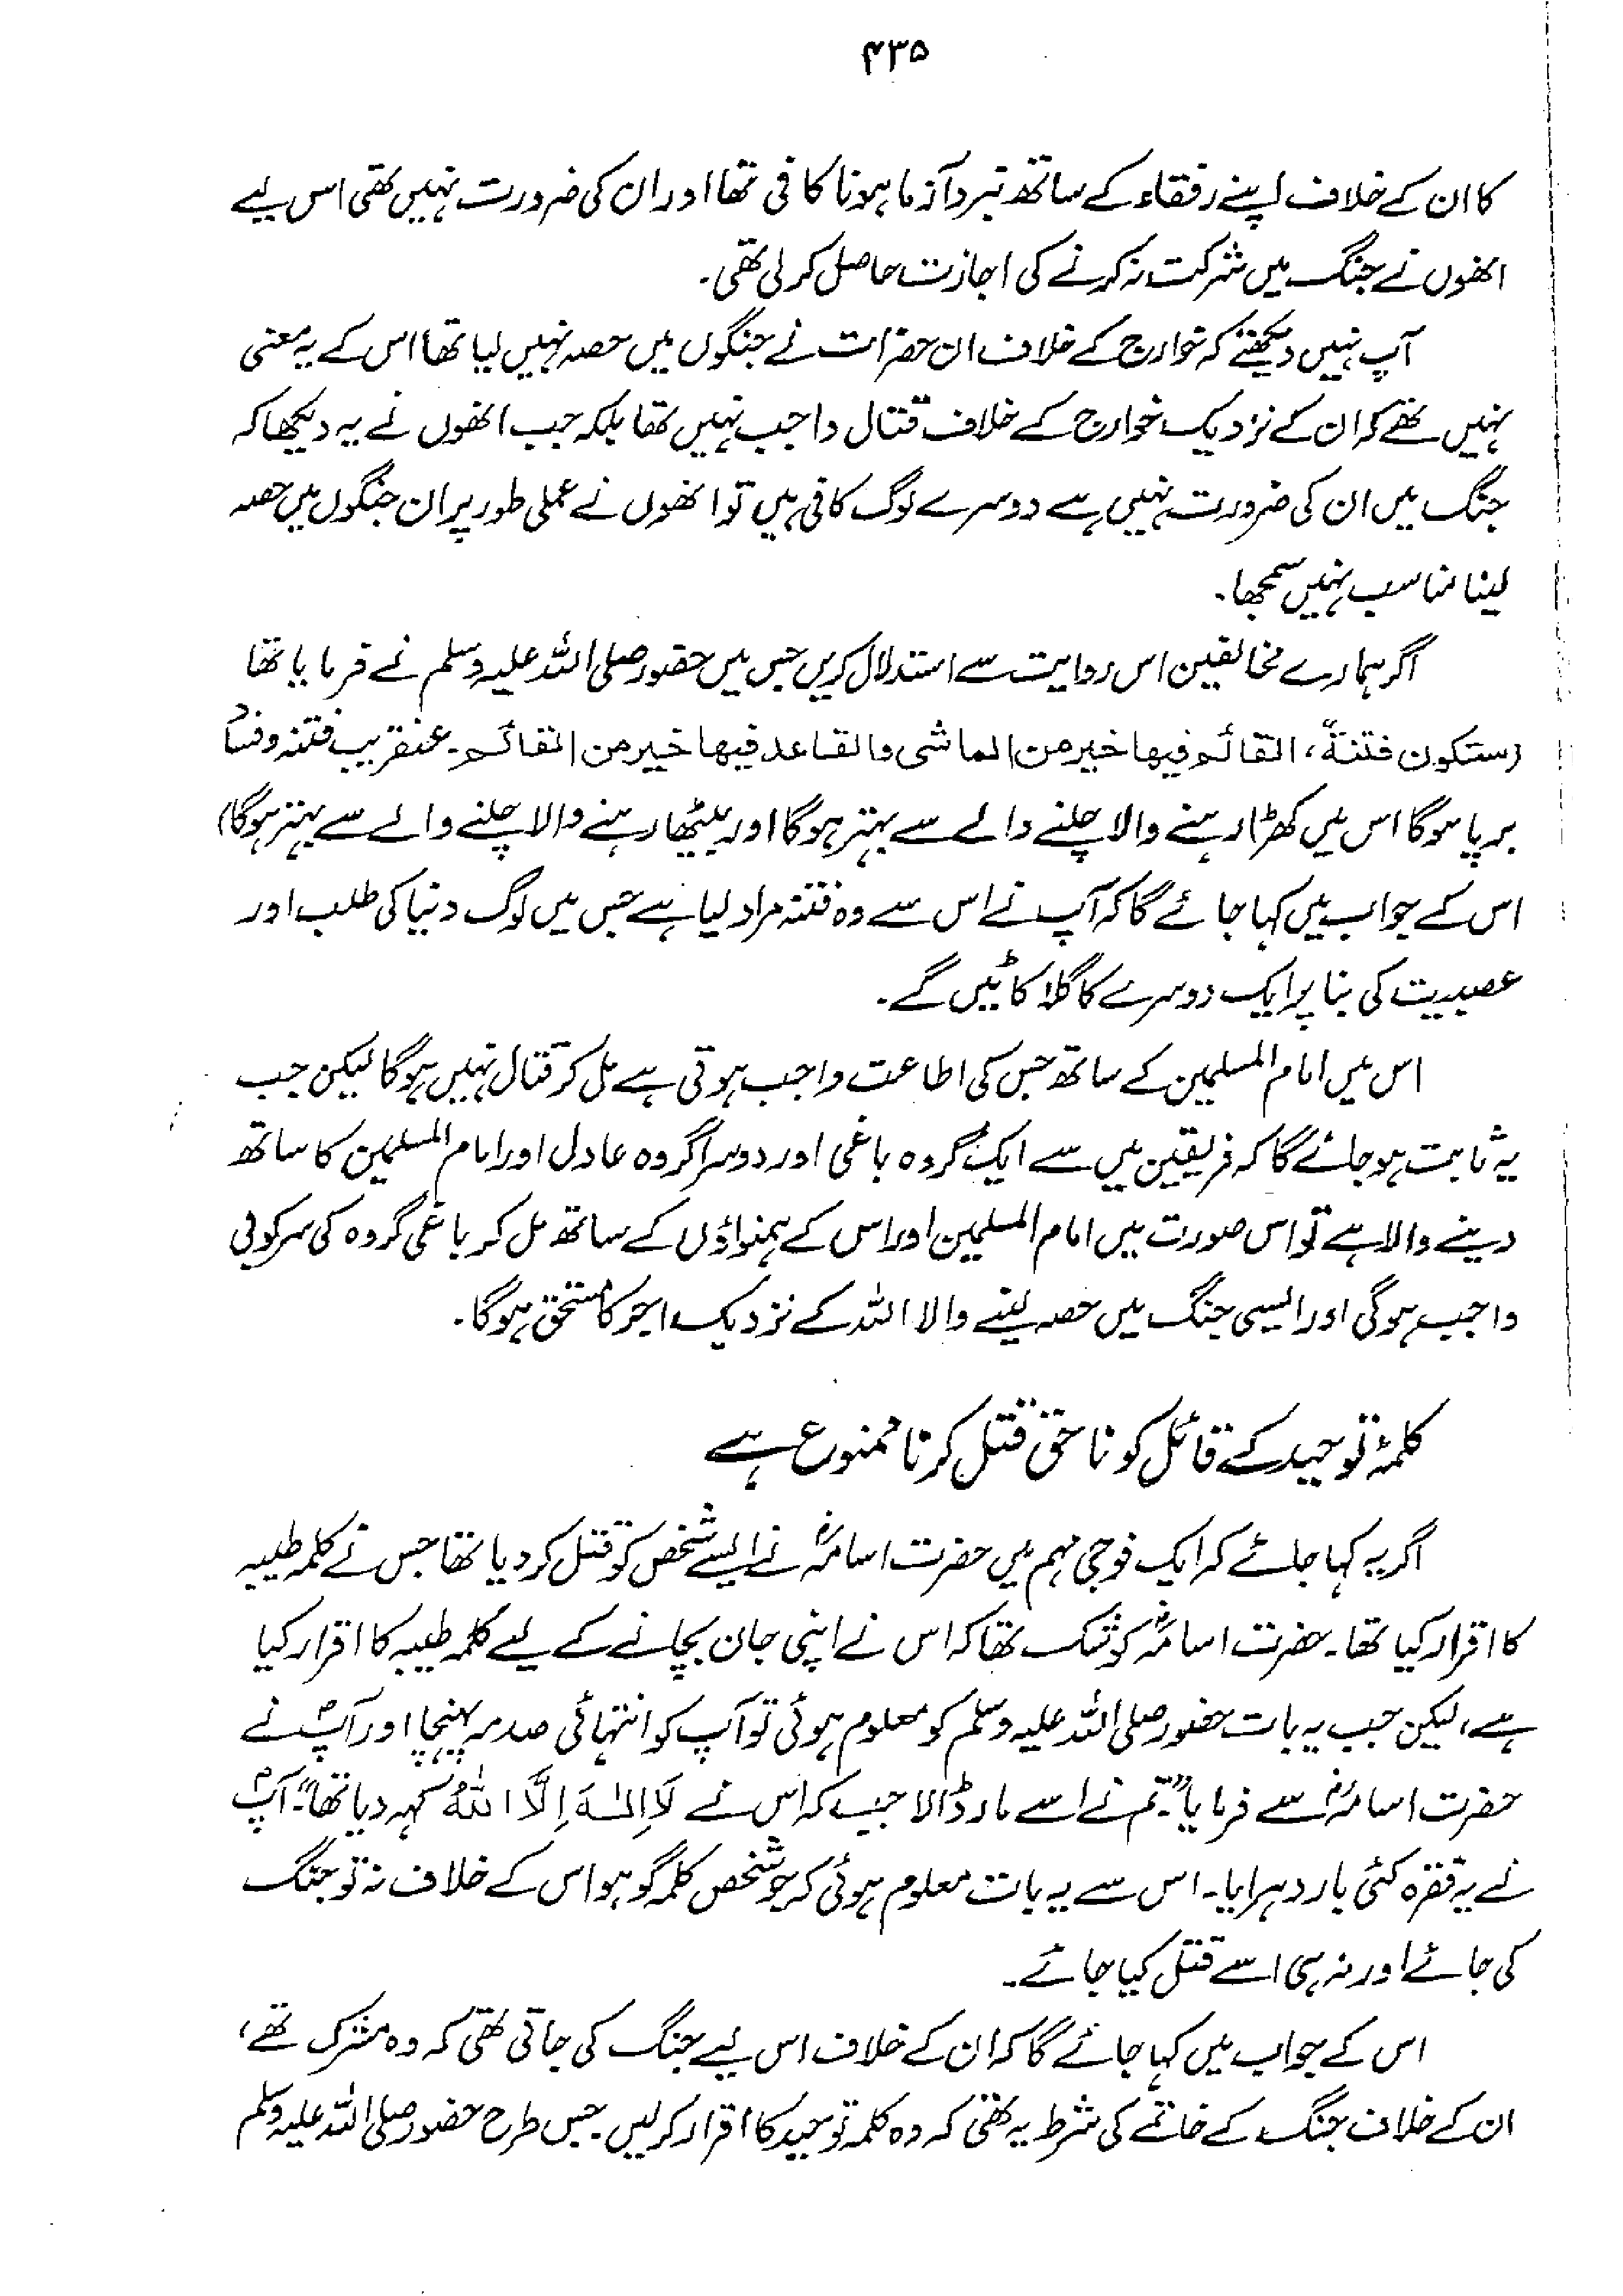 ۴۳۵
کا ان کے خلاف اپنے رفقاء کے ساتھ نبرد آزما ہونا کافی تھا اور ان کی ضرورت نہیں تھی اس لیے
انھوں نے جنگ میں شرکت نہ کرنے کی اجازت حاصل کر لی تھی۔
آپ نہیں دیکھتے کہ خوارج کے خلاف ان حضرات نے جنگوں میں حصہ نہیں لیا تھا اس کے یہ معنی
نہیں تھے کہ ان کے نزدیک خوارج کے خلاف قتال واجب نہیں تھا بلکہ جب انھوں نے یہ دیکھا کہ
جنگ میں ان کی ضرورت نہیں ہے دوسرے لوگ کافی ہیں تو انھوں نے عملی طور پر ان جنگوں میں حصہ
لینا مناسب نہیں سمجھا۔
اگر ہمارے مخالفین اس روایت سے استدلال کریں جس میں حضور صلی اللہ علیہ وسلم نے فرمایا تھا
(ستکون فتنةً، القائم فیها خیر من الماشی والقاعد فیها خیر من القائم۔ عنقریب فتنہ وفساد
برپا ہوگا اس میں کھڑا رہنے والا چلنے والے سے بہتر ہوگا اور بیٹھا رہنے والا چلنے والے سے بہتر ہوگا)
اس کے جواب میں کہا جائے گا کہ آپ نے اس سے وہ فتنہ مراد لیا ہے جس میں لوگ دنیا کی طلب اور
عصبیت کی بنا پر ایک دوسرے کا گلا کاٹیں گے۔
اس میں امام المسلمین کے ساتھ جس کی اطاعت واجب ہوتی ہے مل کر قتال نہیں ہوگا لیکن جب
یہ ثابت ہو جائے گا کہ فریقین میں سے ایک گروہ باغی اور دوسرا گروہ عادل اور امام المسلمین کا ساتھ
دینے والا ہے تو اس صورت میں امام المسلمین اور اس کے ہمنواؤں کے ساتھ مل کر باغی گروہ کی سرکوبی
واجب ہوگی اور ایسی جنگ میں حصہ لینے والا اللہ کے نزدیک اجر کا مستحق ہوگا۔
کلمۂ توحید کے قائل کو ناحق قتل کرنا ممنوع ہے
اگر یہ کہا جائے کہ ایک فوجی مہم میں حضرت اسامہؓ نے ایسے شخص کو قتل کر دیا تھا جس نے کلمہ طیبہ
کا اقرار کیا تھا۔ حضرت اسامہؓ کو شک تھا کہ اس نے اپنی جان بچانے کے لیے کلمہ طیبہ کا اقرار کیا
ہے، لیکن جب یہ بات حضور صلی اللہ علیہ وسلم کو معلوم ہوئی تو آپ کو انتہائی صدمہ پہنچا اور آپؐ نے
حضرت اسامہؓ سے فرمایا "تم نے اسے مار ڈالا جب کہ اس نے لَا اِلٰہَ اِلَّا اللہُ کہہ دیا تھا"۔ آپؐ
نے یہ فقرہ کئی بار دہرایا۔ اس سے یہ بات معلوم ہوئی کہ جو شخص کلمہ گو ہو اس کے خلاف نہ تو جنگ
کی جائے اور نہ ہی اسے قتل کیا جائے۔
اس کے جواب میں کہا جائے گا کہ ان کے خلاف اس لیے جنگ کی جاتی تھی کہ وہ مشرک تھے،
ان کے خلاف جنگ کے خاتمے کی شرط یہ تھی کہ وہ کلمہ توحید کا اقرار کر لیں۔ جس طرح حضور صلی اللہ علیہ وسلم